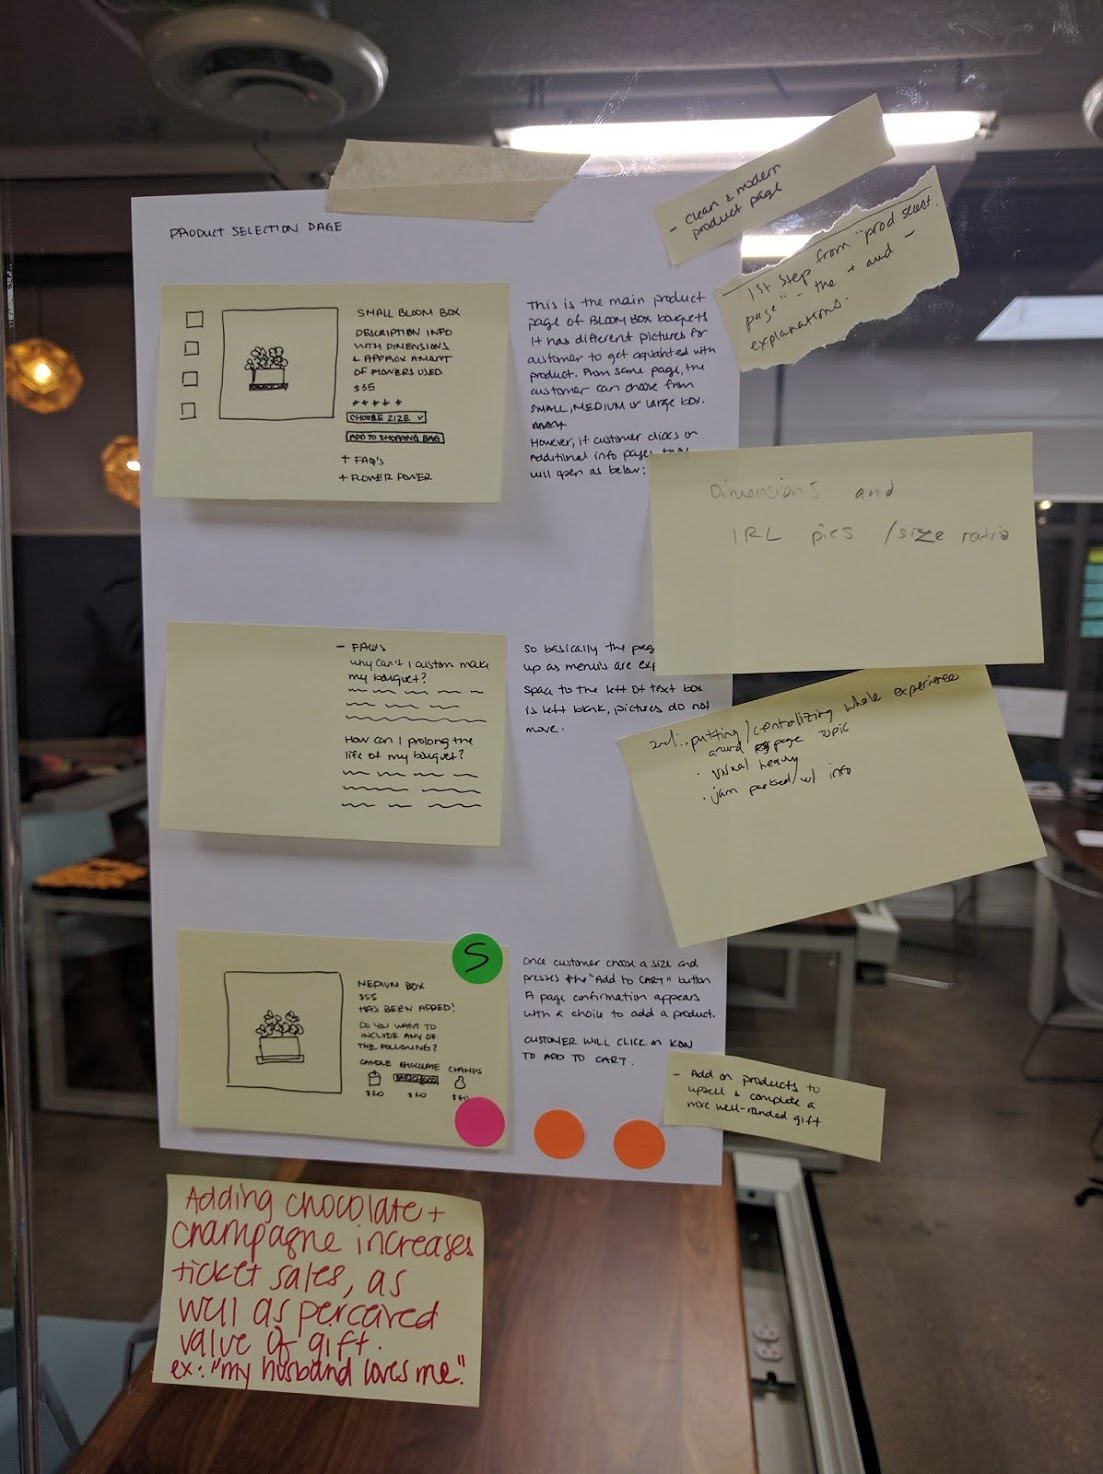 PRODUCT SELECTION PAGE
SMALL BLOOM BOX
DESCRIPTION INFO
WITH DIMENSIONS
& APPROX AMANT
OF FLOWERS USED
$35
CHOOSE SIZE
ADD TO SHOPPING BAG
+ FAQ's
+ FLOWER POWER
This is the main product
page of BLOOM BOX bouquets
It has different pictures for
customer to get aquainted with
product. From same page, the
customer can choose from
SMALL, MEDIUM or large box.
However, if customer clicks on
Additional info pages
will open as below:
- clean & modern
product page
1st step from "prod select.
page" - the + and -
explanations.
Dimensions and
IRL pics / size ratio
- FAQ's
why can't I custom make
my bouquet?
How can I prolong the
life of my bouquet?
So basically the pag
up as menu's are exp
space to the left of text box
is left blank, pictures do not
move.
2nd: putting/centralizing whole experience
around page topic
· visual heavy
· jam packed w/ info
S
MEDIUM BOX
$55
HAS BEEN ADDED!
DO YOU WANT TO
INCLUDE ANY OF
THE FOLLOWING?
CANDLE CHOCOLATE CHAMPS
$20 $20 $40
Once customer choose a size and
presses the "Add to CART" button
A page confirmation appears
with a choice to add a product.
CUSTOMER WILL CLICK ON ICON
TO ADD TO CART.
- Add on products to
upsell & complete a
more well-rounded gift
Adding chocolate +
champagne increases
ticket sales, as
well as perceived
value of gift.
ex: "my husband loves me."